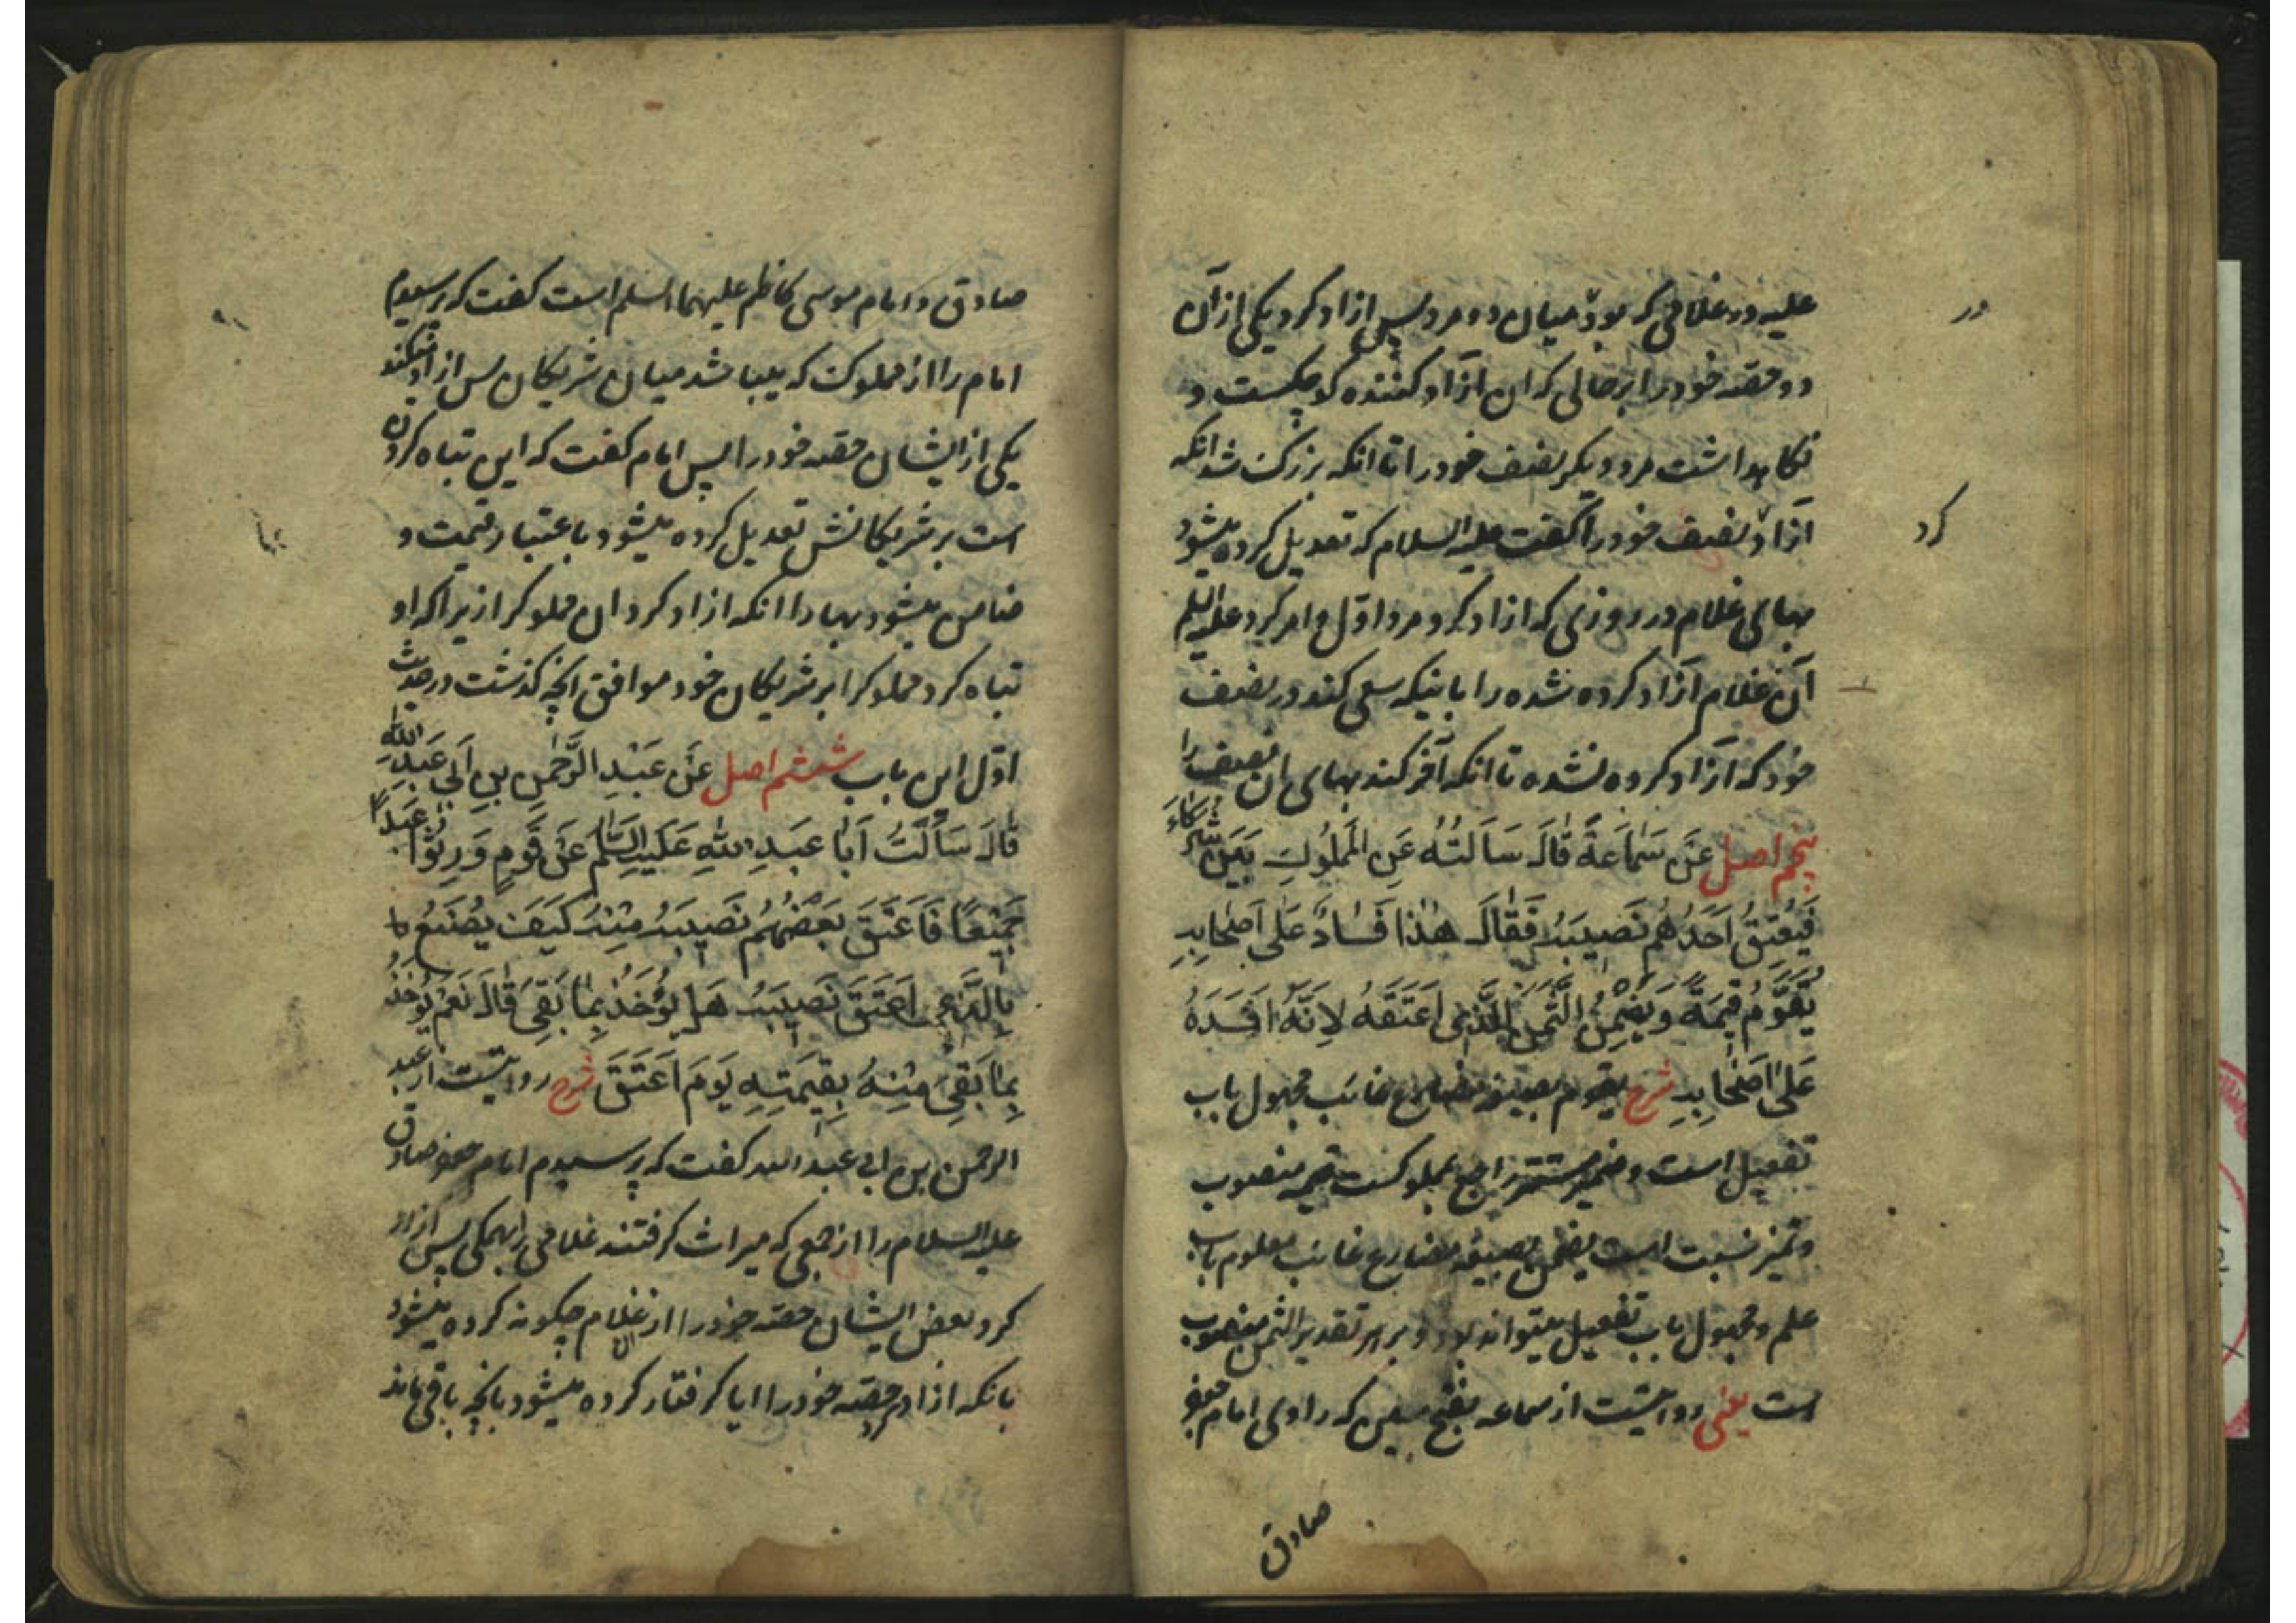 علیه در غلامی که بود میان دو مرد پس ازاد کرد یکی از آن
دو حصه خود را بر حالی که ان آزاد کننده کوچکست و
نکاهداشت مرد دیکر نصف خود را تا انکه بزرک شد انکه
ازاد نصف خود را کفت علیه السلام که تعدیل کرده میشود
بهای غلام در روزی که ازاد کرد مرد اوّل و امر کرد علیه السلم
آن غلام آزاد کرده شده را باینکه سعی کند در نصف
خود که آزاد کرده نشده تا انکه آخر کند بهای ان نصف را
پنجم اصل عَنْ سَمَاعَةَ قَالَ سَاَلتُهُ عَنِ المَملُوكِ بَیْنَ شُرَکَاءَ
فَیُعتِقُ اَحَدُهُم نَصِیبَهُ فَقَالَ هٰذا فَسَادٌ عَلٰی اَصْحَابِهِ
یُقَوَّمُ قِیمَةً وَیَضْمِنُ الثَّمَنَ الَّذِی اَعْتَقَهُ لِاَنَّهُ اَفسَدَهُ
عَلٰی اَصْحَابِهِ شرح یقوم بصیغه مضارع غائب مجهول باب
تفعیل است و ضمیر مستتر راجع بمملوکست قیمه منصوب
و تمیز نسبت است یضمن بصیغه مضارع غائب معلوم باب
علم و مجهول باب تفعیل میتواند بود و بر هر تقدیر الثمن منصوب
است یعنی روایتست از سماعه بفتح سین که راوی امام جعفر
صادق
در
کرد
صادق و امام موسی کاظم علیهما السلم است کفت که پرسیدم
امام را از مملوکت که میباشد میان شریکان پس ازاد میکند
یکی از ایشان حصه خود را پس امام کفت که این تباه کردن
است بر شریکانش تعدیل کرده میشود باعتبار قیمت و
ضامن میشود بها را انکه ازاد کرد ان مملوکرا زیرا که او
تباه کرد مملوکرا بر شریکان خود موافق انچه کذشت در حدیث
اوّل این باب ششم اصل عَنْ عَبْدِ الرَّحْمٰنِ بنِ اَبِی عَبْدِ اللّٰهِ
قَالَ سَاَلْتُ اَبَا عَبدِ اللّٰهِ عَلَیهِ السَّلَمُ عَنْ قَومٍ وَرِثُوا عَبدًا
جَمِیْعًا فَاَعْتَقَ بَعْضُهُم نَصِیبَهُ مِنْهُ کَیفَ یُصْنَعُ
بِالَّذِی اَعْتَقَ نَصِیبَهُ هَل یُوْخَذُ بِمَا بَقِیَ قَالَ نَعَمْ یُوخَذُ
بِمَا بَقِیَ مِنْهُ بِقِیمَتِهِ یَومَ اَعْتَقَ شرح روایتست از عبد
الرحمن بن ابی عبد الله کفت که پرسیدم امام جعفر صادق
علیه السلام را از جمعی که میراث کرفتند غلامی را همکی پس ازاد
کرد بعض ایشان حصه خود را از ان غلام چکونه کرده میشود
بانکه ازاد کرد حصه خود را ایا کرفتار کرده میشود بانچه باقی ماند